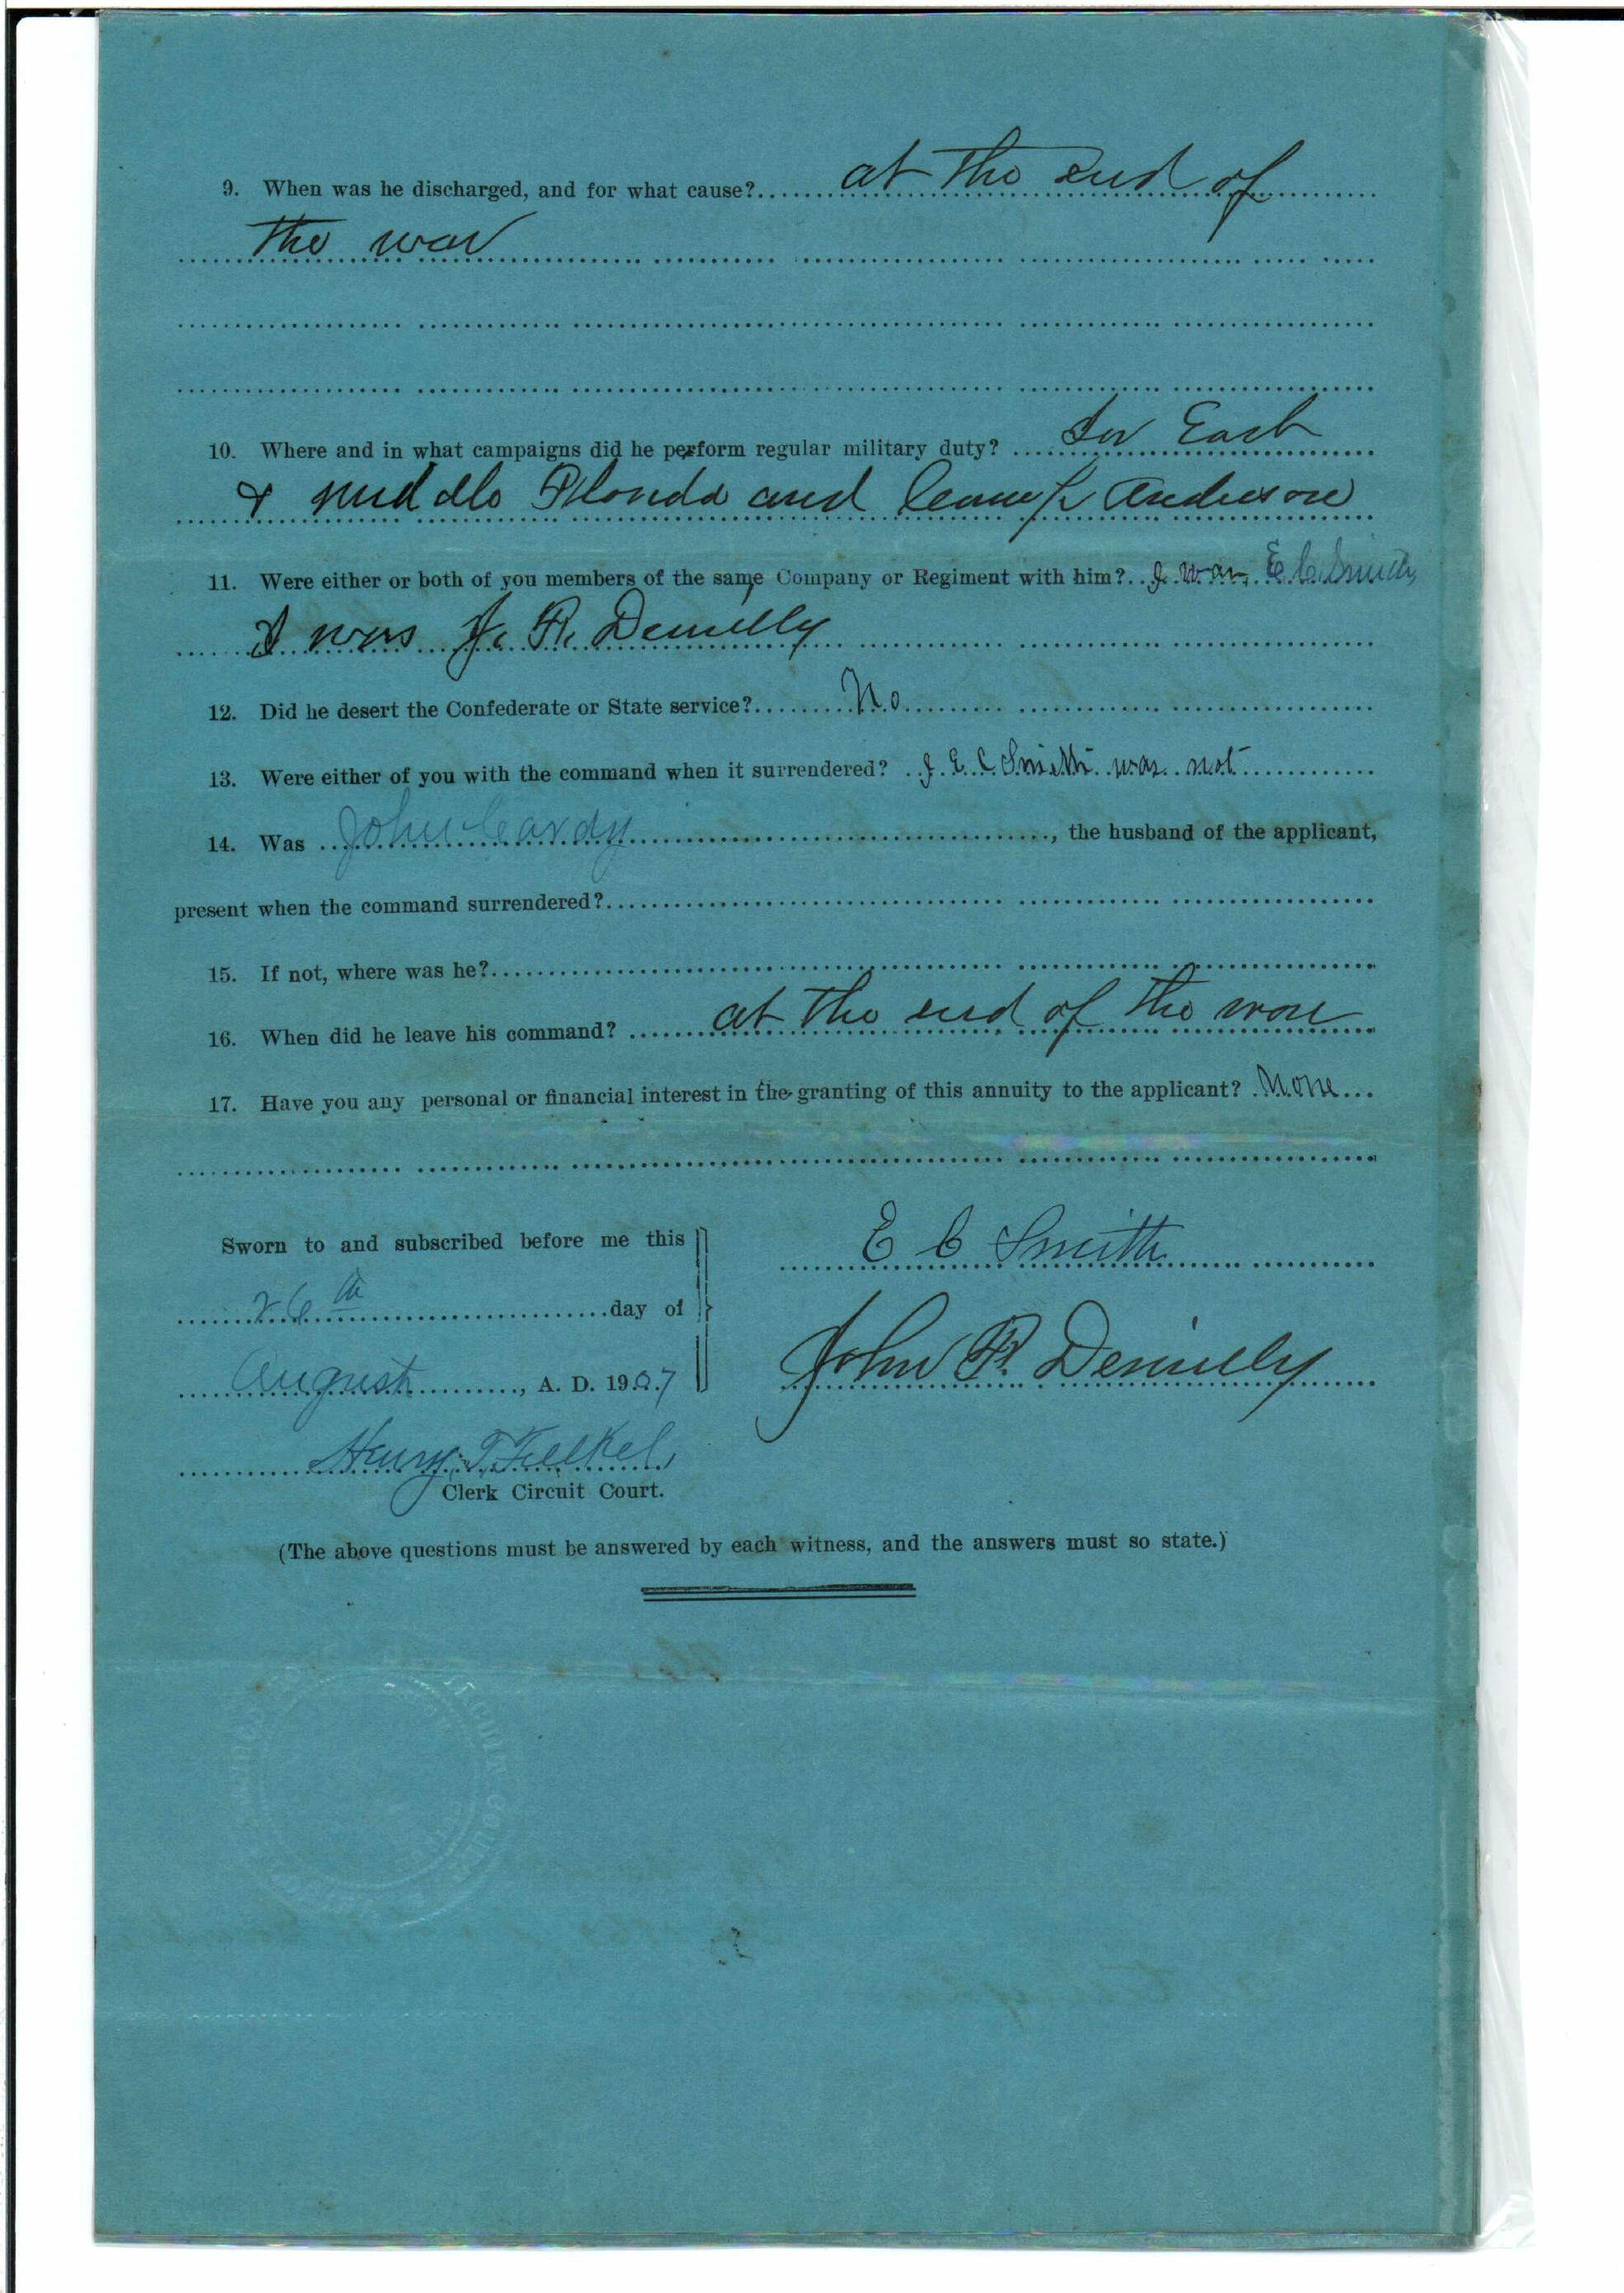 9. When was he discharged, and for what cause? at the end of
the war
10. Where and in what campaigns did he perform regular military duty? In East
& middle Florida and Camp Anderson
11. Were either or both of you members of the same Company or Regiment with him? I was E C Smith
I was J. R. Demilly
12. Did he desert the Confederate or State service? No
13. Were either of you with the command when it surrendered? I E. C Smith was not
14. Was John Cardy, the husband of the applicant,
present when the command surrendered?
15. If not, where was he?
16. When did he leave his command? at the end of the war
17. Have you any personal or financial interest in the granting of this annuity to the applicant? None
Sworn to and subscribed before me this
26th day of
August, A. D. 1907
E C Smith
John R. Demilly
Henry T. Felkel,
Clerk Circuit Court.
(The above questions must be answered by each witness, and the answers must so state.)